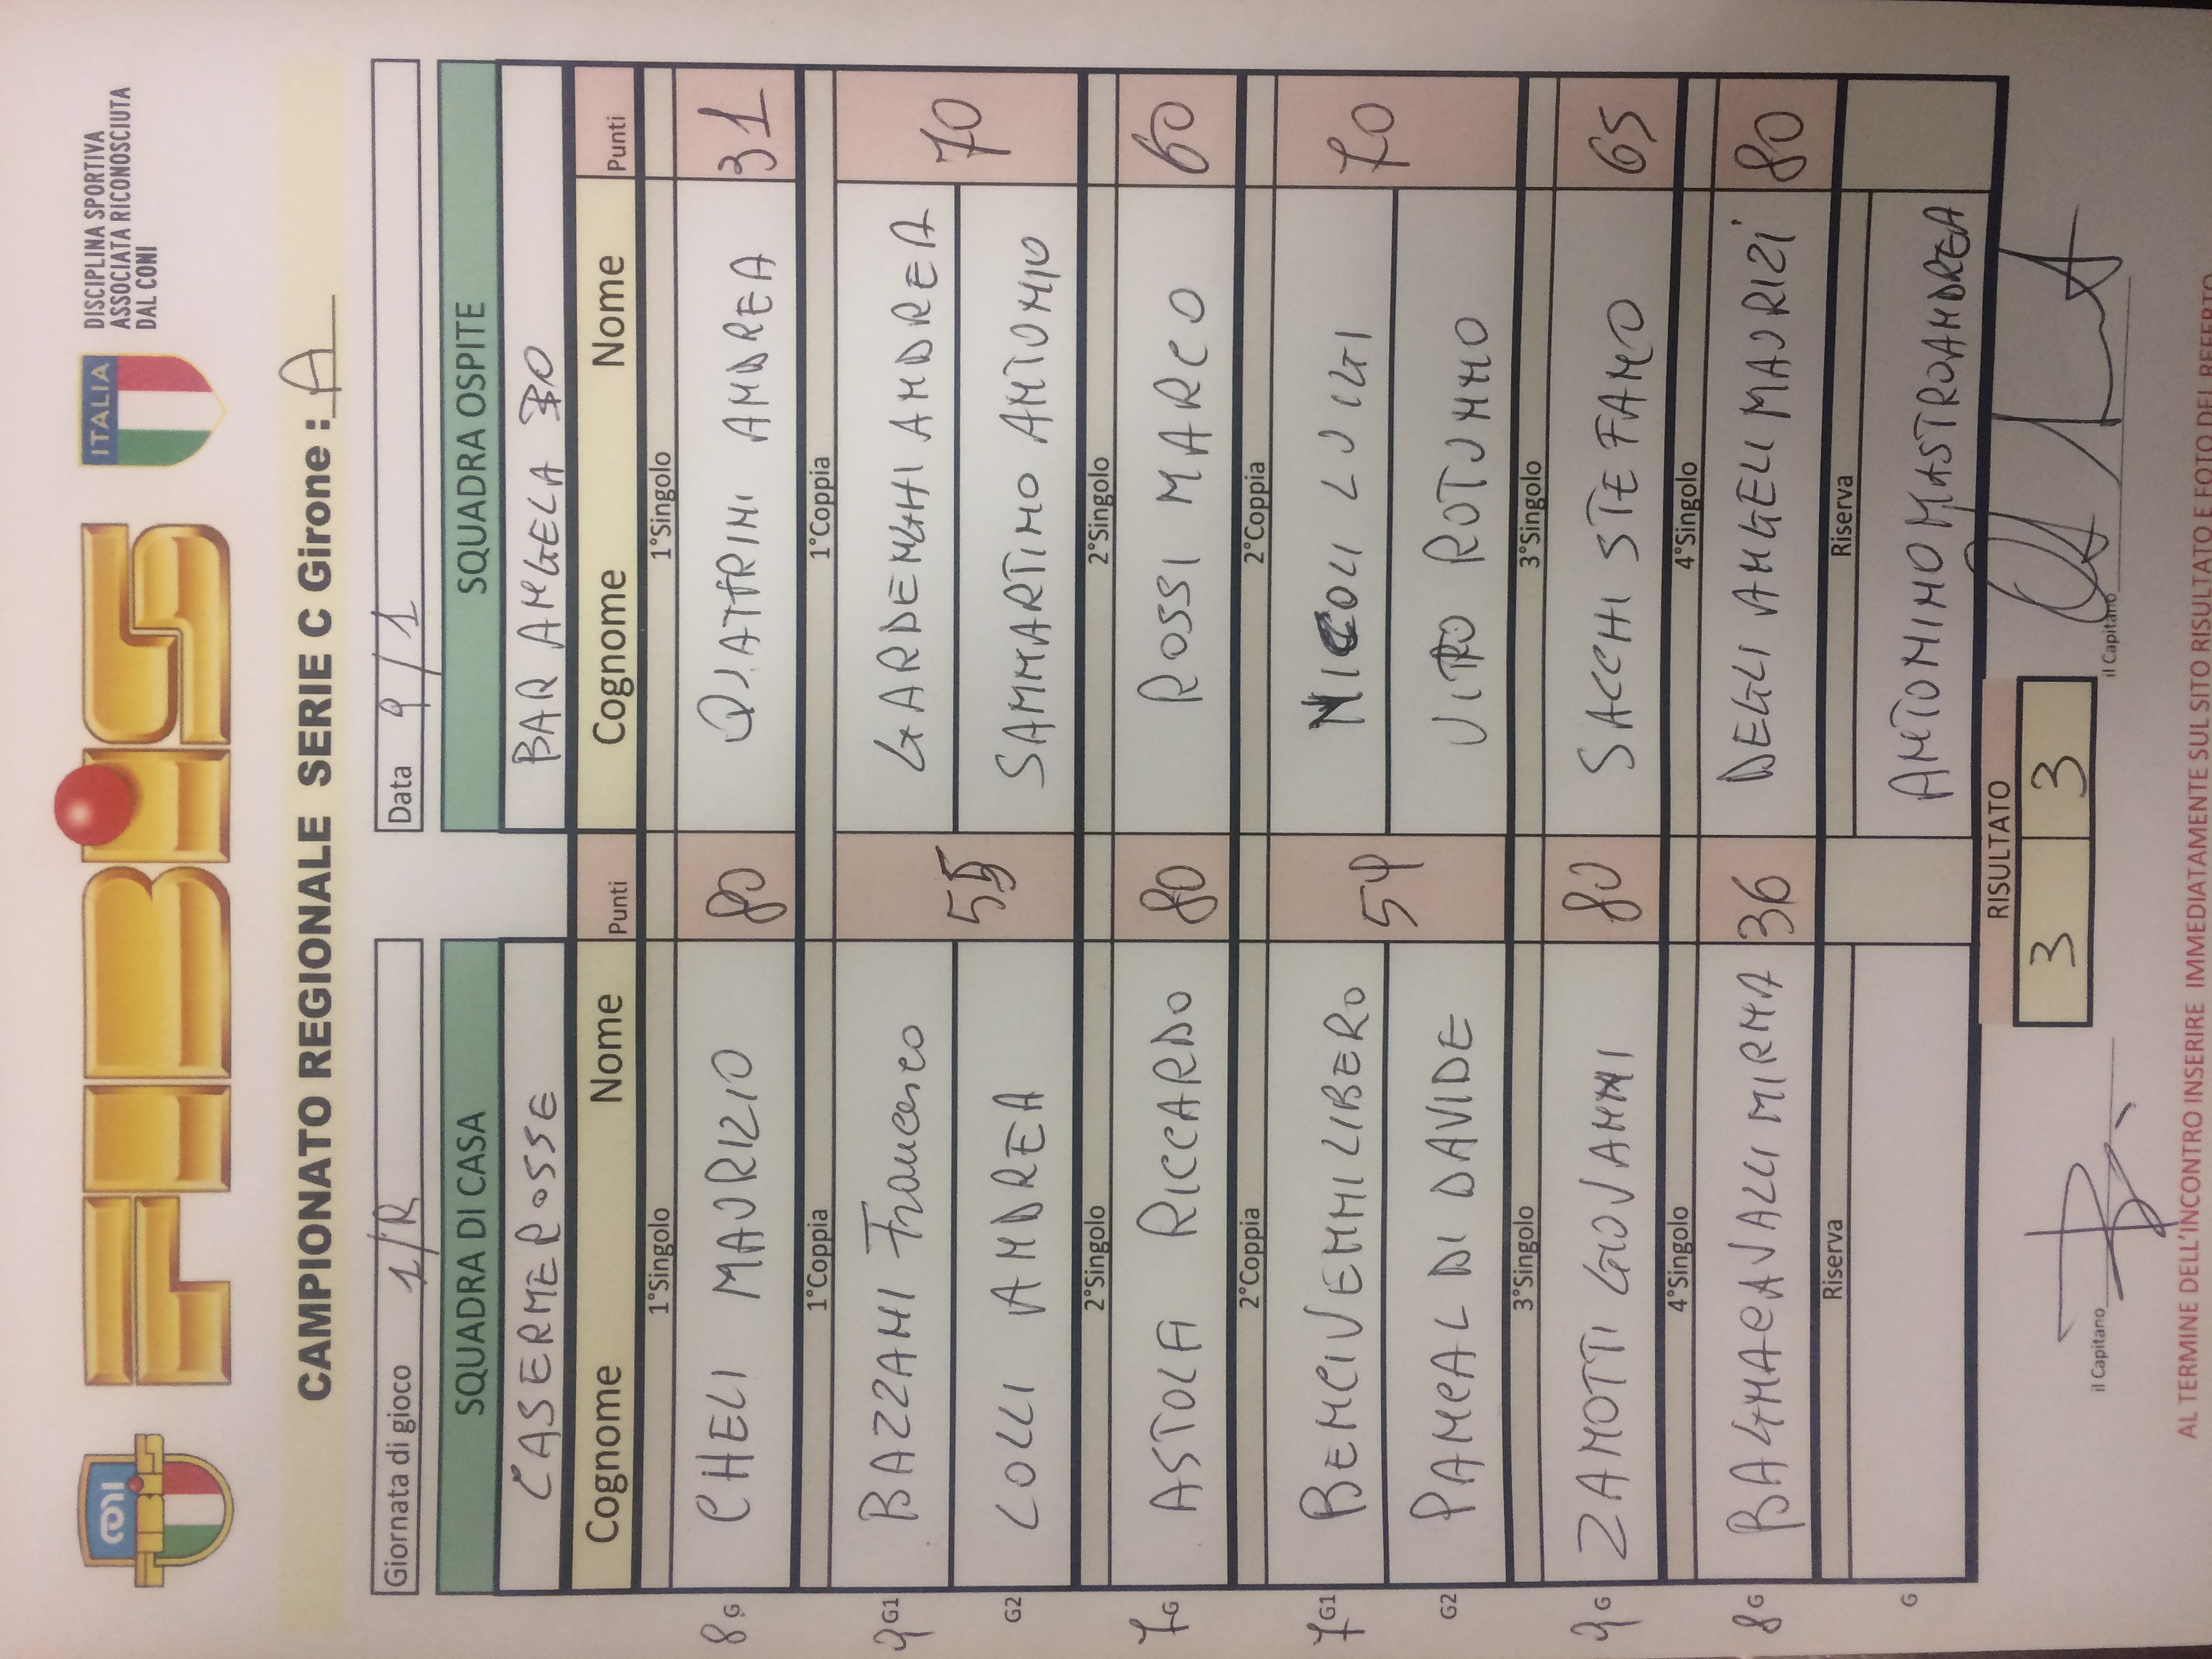 CONI
FIBiS
ITALIA
DISCIPLINA SPORTIVA
ASSOCIATA RICONOSCIUTA
DAL CONI
CAMPIONATO REGIONALE SERIE C Girone : A
Giornata di gioco 1/R Data 9/1
SQUADRA DI CASA SQUADRA OSPITE
CASERME ROSSE BAR ANGELA BO
Cognome Nome Punti Cognome Nome Punti
1°Singolo 1°Singolo
8 G CHELI MAURIZIO 80 QUATRINI ANDREA 31
1°Coppia 1°Coppia
9 G1 BAZZANI Francesco 55 GARDENGHI ANDREA 70
G2 LOLLI ANDREA SAMMARTINO ANTONIO
2°Singolo 2°Singolo
7 G ASTOLFI RICCARDO 80 ROSSI MARCO 60
2°Coppia 2°Coppia
7 G1 BENCIVENNI LIBERO 54 NICOLI LUIGI 70
G2 PANCALDI DAVIDE VITO ROTUNNO
3°Singolo 3°Singolo
9 G ZANOTTI GIOVANNI 80 SACCHI STEFANO 65
4°Singolo 4°Singolo
8 G BAGNACAVALLI MIRNA 36 DEGLI ANGELI MAURIZI 80
Riserva Riserva
G ANTONINO MASTROANDREA
RISULTATO
3 3
il Capitano il Capitano
AL TERMINE DELL'INCONTRO INSERIRE IMMEDIATAMENTE SUL SITO RISULTATO E FOTO DEL REFERTO